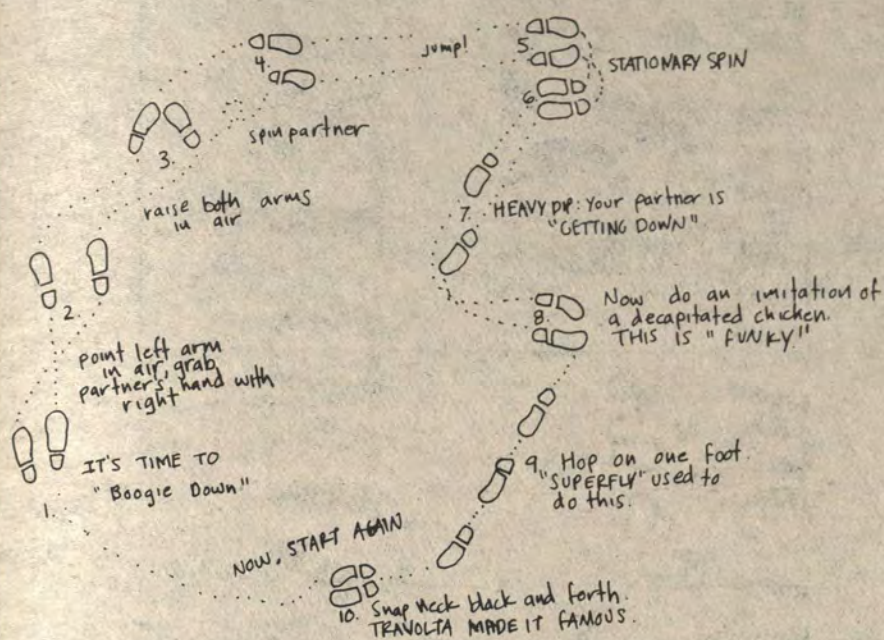 1.
IT'S TIME TO
"Boogie Down"
2.
point left arm
in air, grab
partner's hand with
right
3.
raise both arms
in air
spin partner
4.
jump!
5.
STATIONARY SPIN
6
7.
HEAVY DIP: Your partner is
"GETTING DOWN"
8.
Now do an imitation of
a decapitated chicken.
THIS IS "FUNKY!"
9. Hop on one foot.
"SUPERFLY" used to
do this.
10. Snap neck black and forth.
TRAVOLTA MADE IT FAMOUS.
NOW, START AGAIN